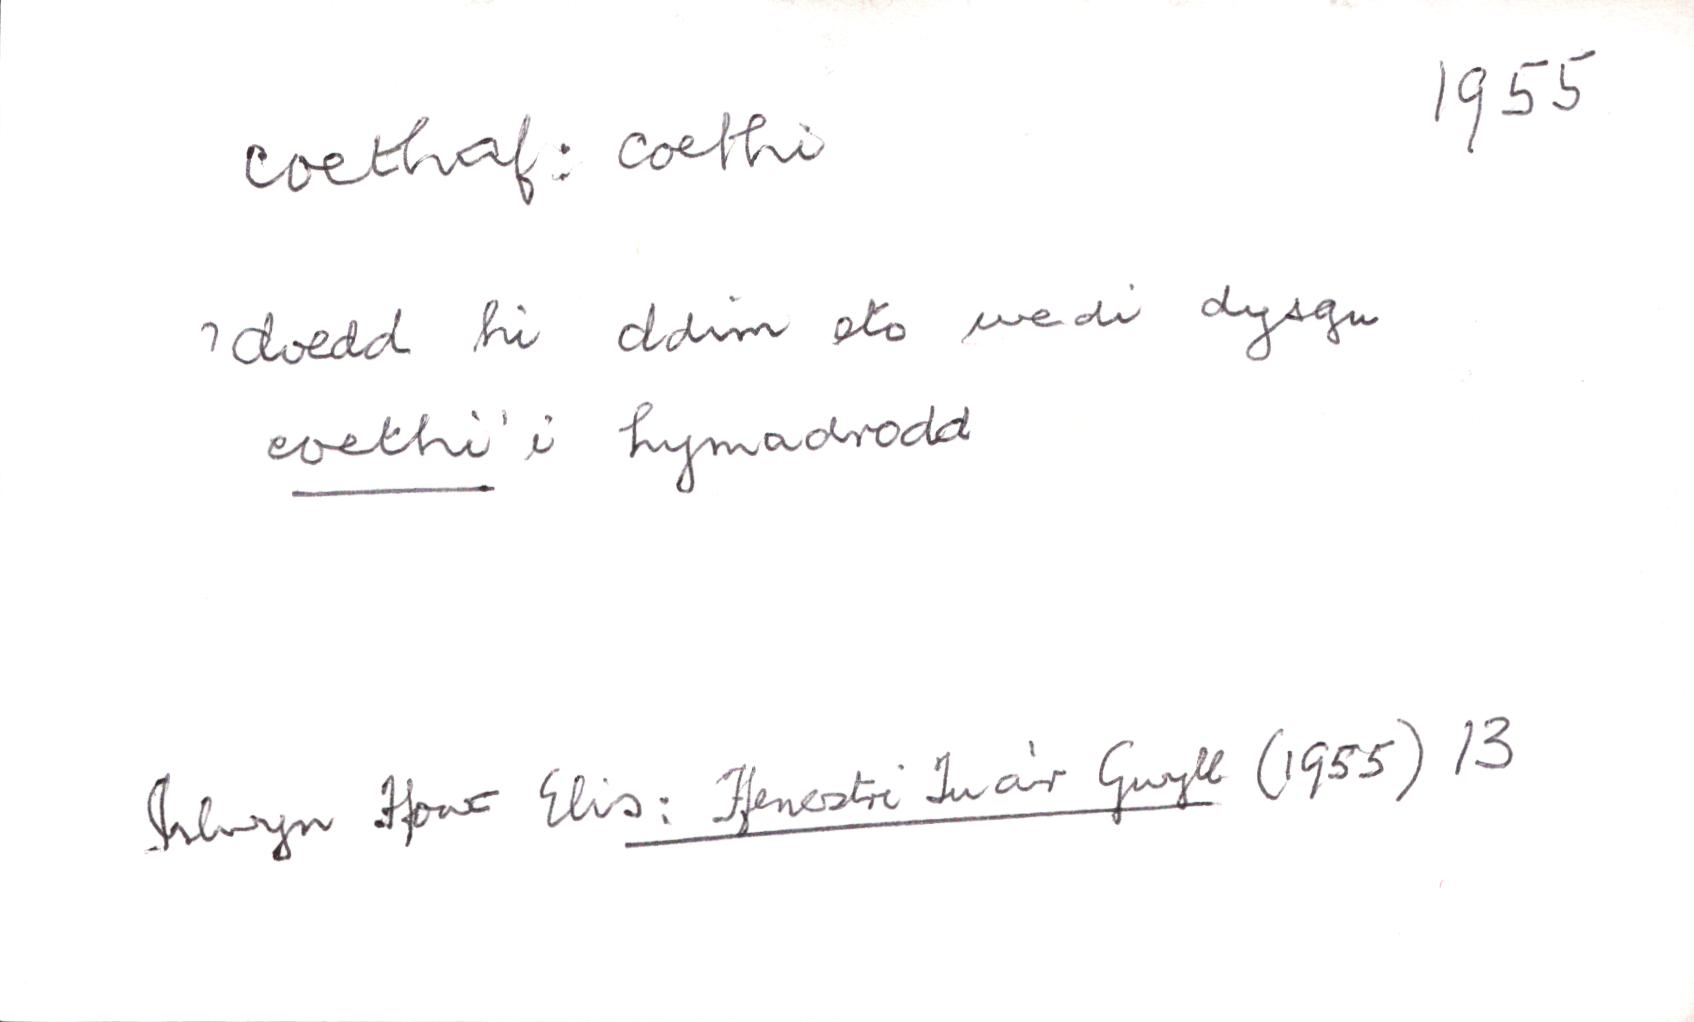 1955
coethaf: coethi
'doedd hi ddim eto wedi dysgu
coethi'i hymadrodd
Islwyn Ffowc Elis: Ffenestri Tua'r Gwyll (1955) 13